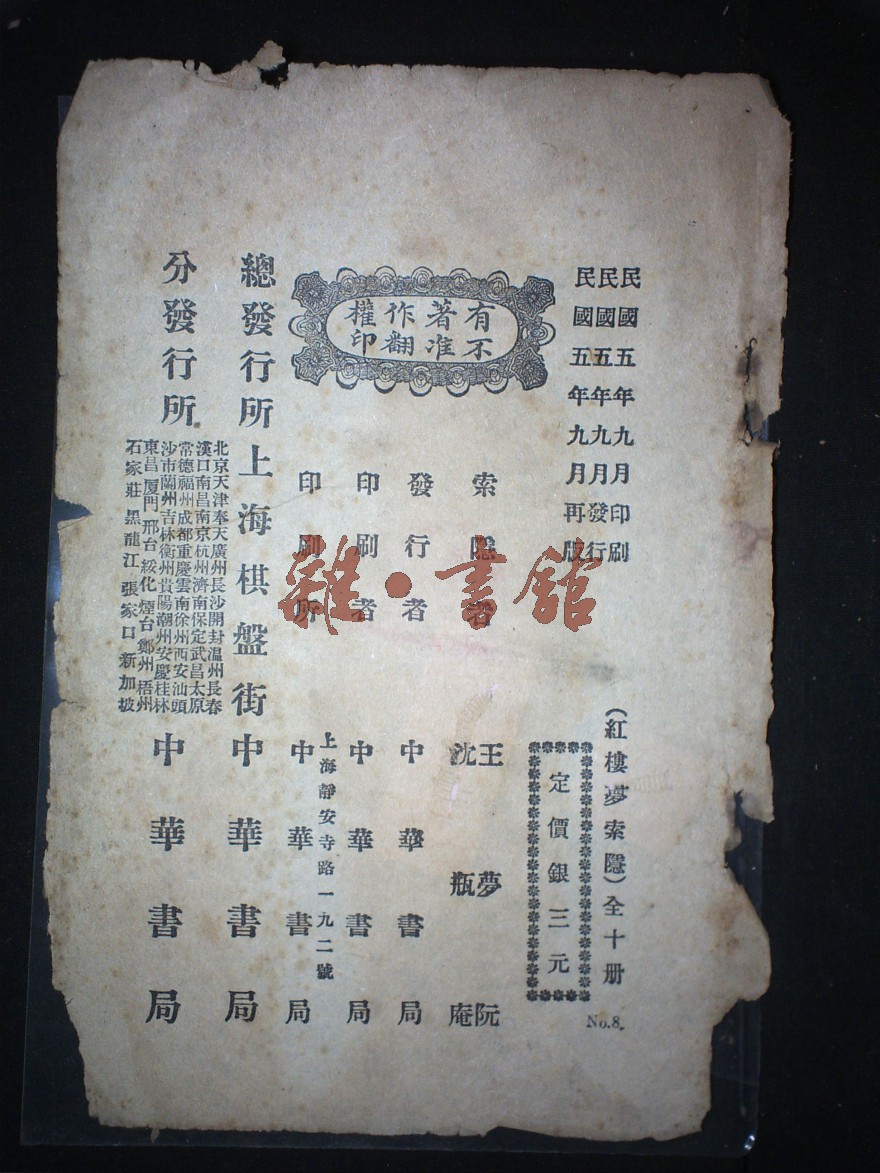 民國五年九月印刷
民國五年九月發行
民國五年九月再版
(紅樓夢索隱)全十册
定價銀三元
No.8.
有著作權
不准翻印
索隱者
王夢阮
沈瓶庵
發行者
中華書局
印刷者
中華書局
印刷所
上海靜安寺路一九二號
中華書局
總發行所
上海棋盤街
中華書局
分發行所
北京天津奉天廣州長沙開封温州長春
漢口南昌南京杭州濟南保定武昌太原
常德福州成都重慶雲南徐州西安汕頭
沙市蘭州吉林衡州貴陽潮州安慶桂林
東昌厦門邢台綏化煙台鄭州梧州
石家莊黑龍江張家口新加坡
中華書局
雜·書館